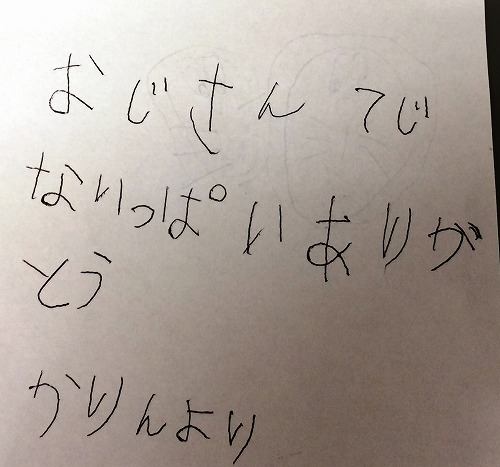 おじさん てじ
なりっぱい ありが
とう
かりんより